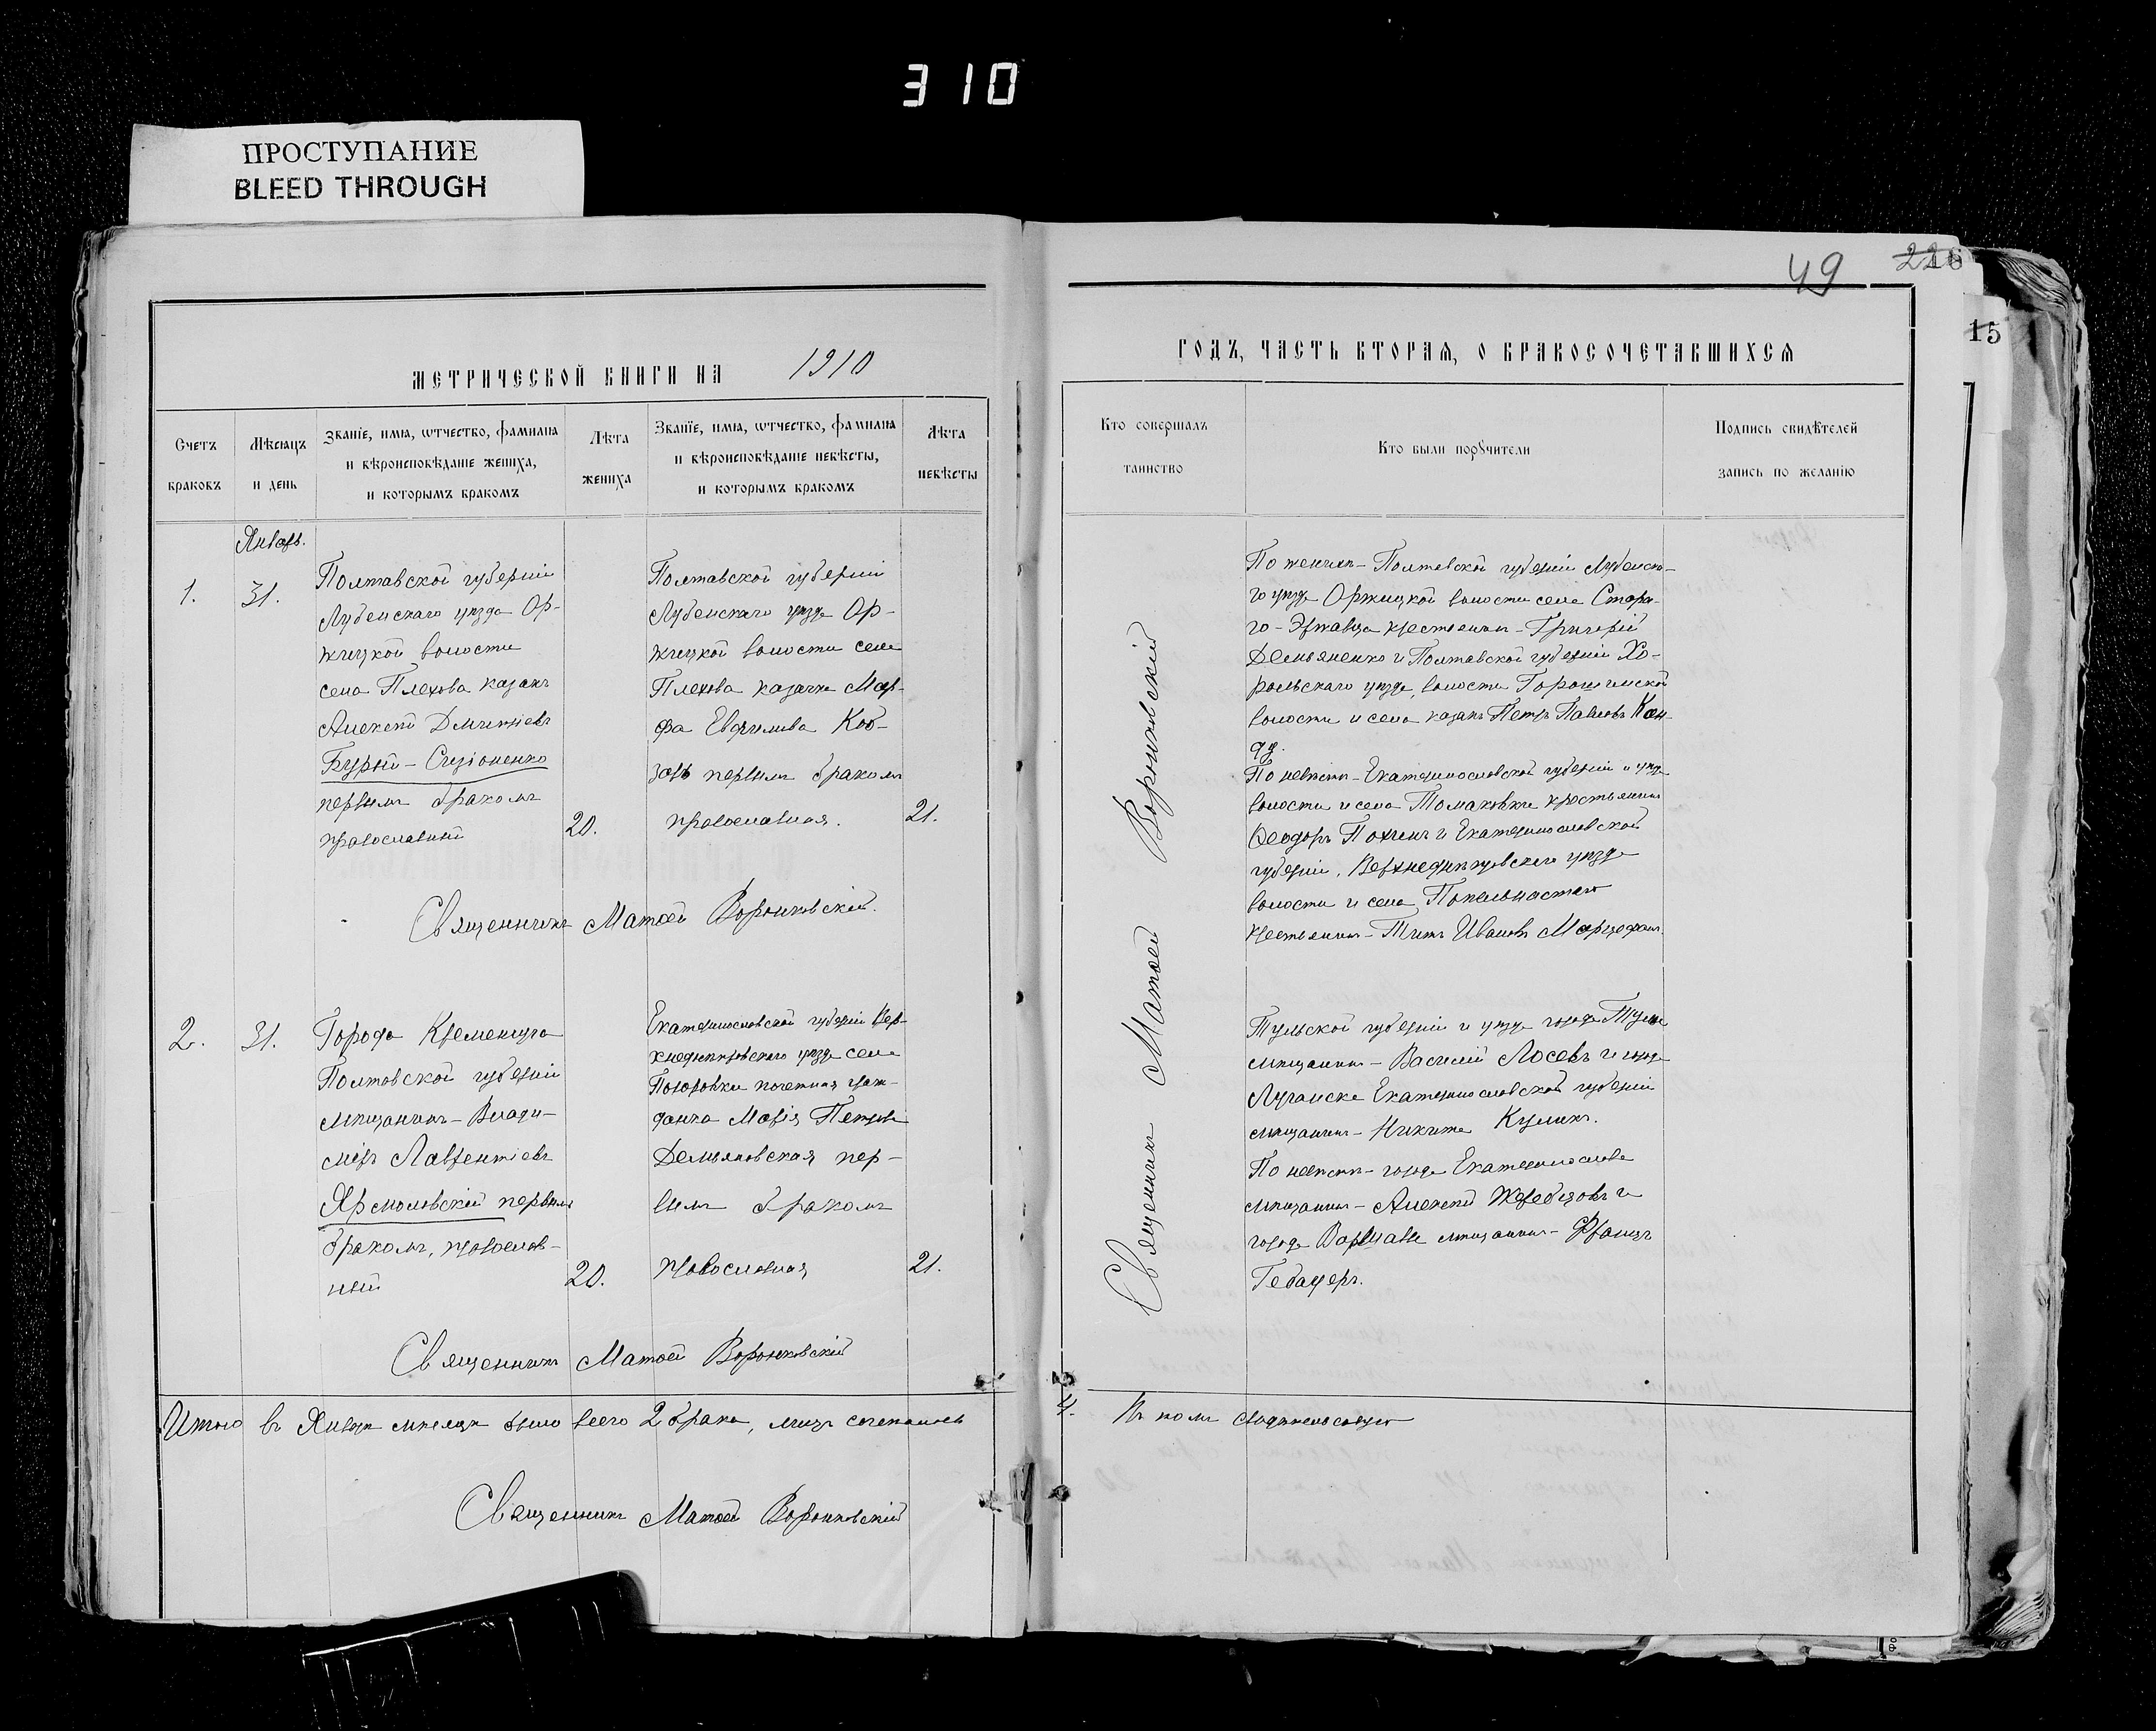 310
ПРОСТУПАНИЕ
BLEED THROUGH
49
228
15
МЕТРИЧЕСКОЙ КНИГИ НА 1910
ГОДЪ, ЧАСТЬ ВТОРАЯ, О БРАКОСОЧЕТАВШИХСЯ
Счетъ
браковъ
Мѣсяцъ
и день
Званіе, имя, ѡтчество, фамилїа
и вѣроисповѣданіе жениха,
и которымъ бракомъ
Лѣта
жениха
Званіе, имя, ѡтчество, фамилїа
и вѣроисповѣданіе невѣсты,
и которымъ бракомъ
Лѣта
невѣсты
Кто совершалъ
таинство
Кто были порꙋчители
Подпись свидѣтелей
запись по желанію
Январь.
1.
31.
Полтавской губерніи
Лубенскаго уѣзда Ор-
жицкой волости
села Плехова казакъ
Алексѣй Дмитріевъ
Бурый - Сизіоненко
первымъ бракомъ
православный
20.
Полтавской губерніи
Лубенскаго уѣзда Ор-
жицкой волости села
Плехова казачка Мар-
фа Евфимова Коб-
зарь первымъ бракомъ
православная.
21.
Священникъ Матѳей Воронковскій.
По женихѣ - Полтавской губерніи Лубенска-
го уѣзда Оржицкой волости села Старо-
го - Иржавца крестьянинъ - Григорій
Демьяненко и Полтавской губерніи Хо-
рольскаго уѣзда, волости Горошинской
волости и села казакъ Петръ Павловъ Кан-
да.
По невѣстѣ - Екатеринославской губерніи и уѣзда
волости и села Томаковки крестьянинъ
Ѳеодоръ Похилъ и Екатеринославской
губерніи, Верхнеднѣпровскаго уѣзда
волости и села Попельнастаго
крестьянинъ - Титъ Ивановъ
2.
31.
Города Кременчуга
Полтавской губерніи
мѣщанинъ - Влади-
міръ Лаврентіевъ
Ярмоловскій первымъ
бракомъ, православ-
ный
20.
Екатеринославской губерніи Вер-
хнеднѣпровскаго уѣзда села
почетная граж-
данка Марія Петрова
Демьяновская пер-
вымъ бракомъ
православная
21.
Священникъ Матѳей Воронковскій
Священникъ Матѳей Воронковскій
Тульской губерніи и уѣзда города Тулы
мѣщанинъ - Василій Лосевъ и города
Луганска Екатеринославской губерніи
мѣщанинъ - Никита Куликъ.
По невѣстѣ - города Екатеринослава
мѣщанинъ - Алексѣй Жеребцовъ и
города Варшавы мѣщанинъ - Францъ
Гебауеръ.
Итого въ Январѣ мѣсяцѣ было всего 2 брака, лицъ сочеталось
4. Въ томъ свидѣтельствуетъ
Священникъ Матѳей Воронковскій